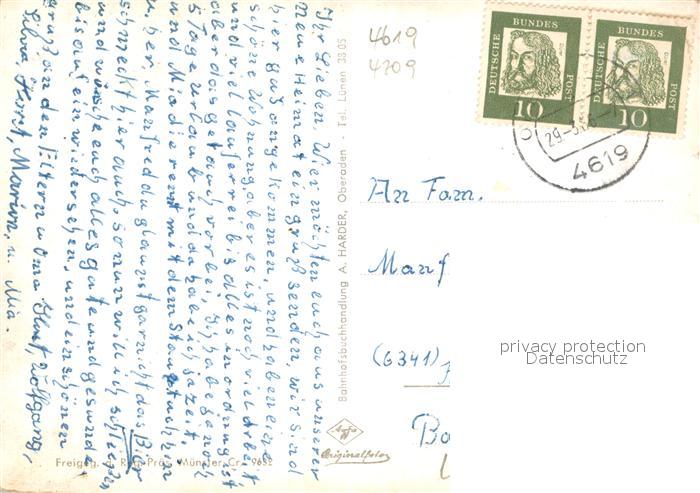 Ihr Lieben, Wir möchten euch aus unserer
neue Heimat ein gruß senden, wir sind
hier gut angekommen, und haben eine
schöne Wohnung, aber es ist noch viel Arbeit
und viel lauferrei bis alles in ordnung ist
aber das get auch vorbei, Ich habe genoch
5 Tage urlaub und da habe ich zeit.
und Mia die rennt mit dem Staubtuch hin
u. her, Manfred du glaubst gar nicht das Bier
schmeckt hier auch, so nun will ich schließen
und wünsche euch alles gute und gesunde
bis auf ein wiedersehen, und ein schönen
gruß an den Eltern u Oma Horst, Wolfgang,
Silvia, Horst, Marion, u. Mia.
Freigeg. d. Reg. Präs. Münster Cr. 9652
Bahnhofsbuchhandlung A. HARDER, Oberaden · Tel. Lünen 38 05
Agfa
Originalfoto
4619
4709
DEUTSCHE BUNDES POST
10
DEUTSCHE BUNDES POST
10
4619
An Fam.
Manf
(6341)
privacy protection
Datenschutz